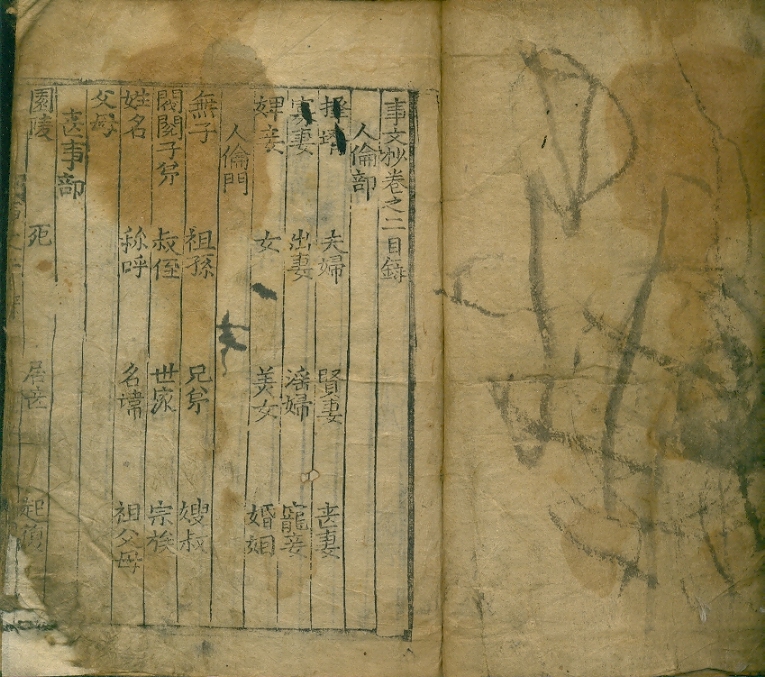 事文抄卷之二 目錄
人倫部
擇壻 夫婦 賢妻 丧妻
出妻 淫婦 寵妾
婢妾 女 美女 婚姻
人倫門
無子 祖孫 兄弟 嫂叔
閥閱子弟 叔侄 世家 宗族
姓名 称呼 名諱 祖父母
父母
丧事部
園陵 死